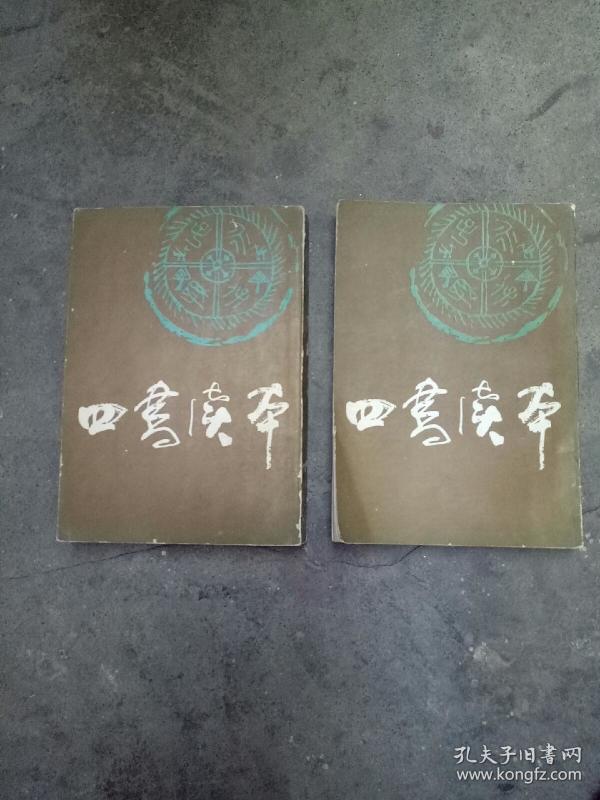 四书读本
四书读本
孔夫子旧书网
www.kongfz.com